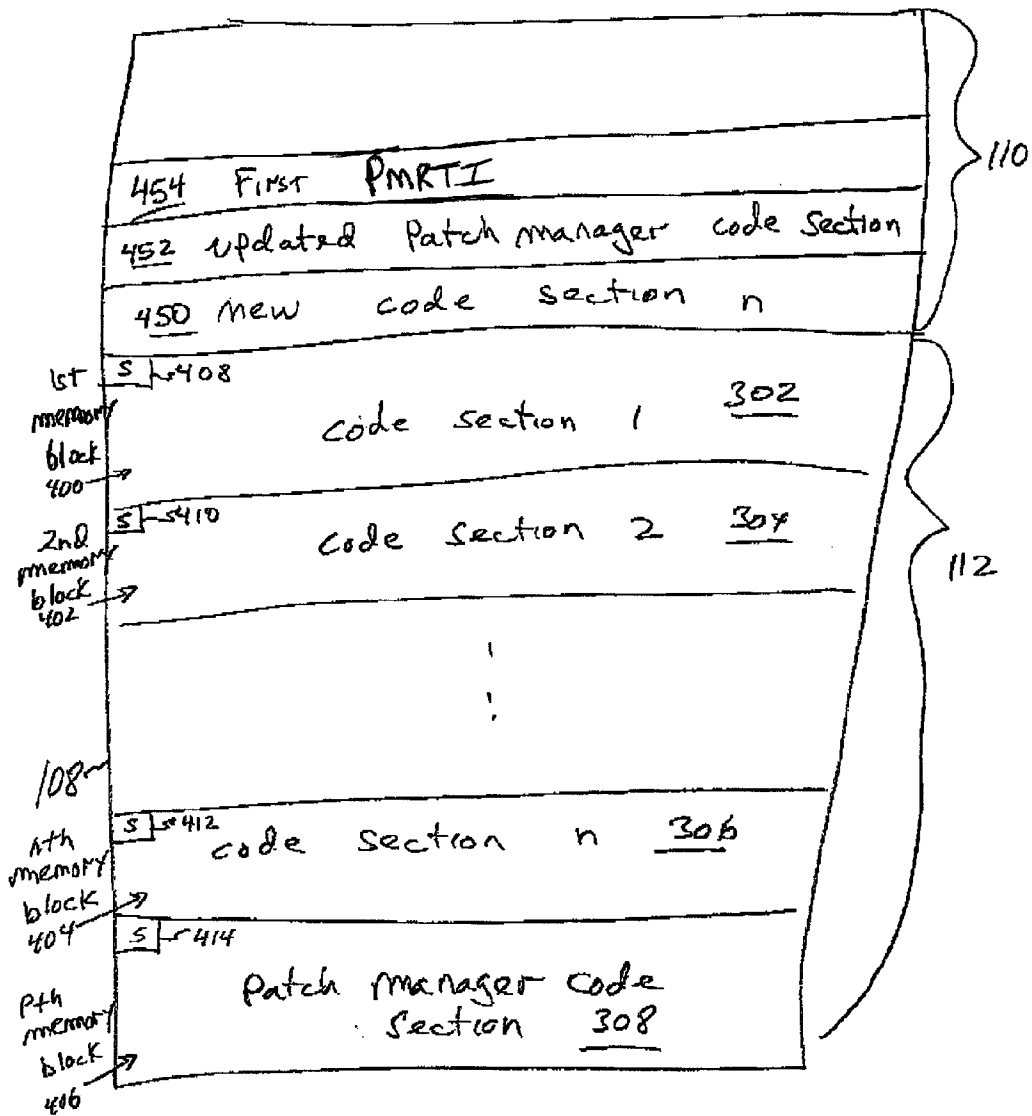 110
454 First PMRTI
452 updated Patch manager code section
450 new code section n
1st memory block 400
S 408
code section 1 302
2nd memory block 402
S 410
code section 2 304
112
108
nth memory block 404
S 412
code section n 306
pth memory block 406
S 414
Patch manager code
section 308